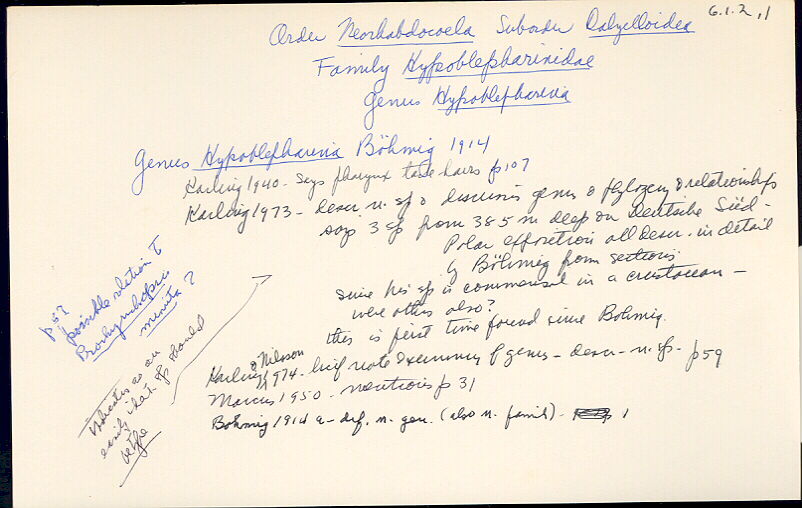 6.1.2.1
Order Neorhabdocoela Suborder Dalyelloidea
Family Hypoblepharinidae
Genus Hypoblepharina
Genus Hypoblepharina Böhmig 1914
Karling 1940 - Says pharynx has hairs p107
Karling 1973 - descr. n. sp & discusses genus & phylogeny & relationships
says 3 sp from 385 m deep on Deutsche Süd-
Polar Expedition all descr. in detail
by Böhmig from sections
since his sp is commensal in a crustacean -
were others also?
this is first time found since Bohmig.
Karling & Nilsson 1974 - brief note & summary of genus - descr - n. sp. - p59
Marcus 1950 - mentions p 31
Böhmig 1914 a - def. n. gen. (also n. family) - 1
p 59
possible relation to
Prorhynchopsis
minuta ?
Indicates as an
early that sp should